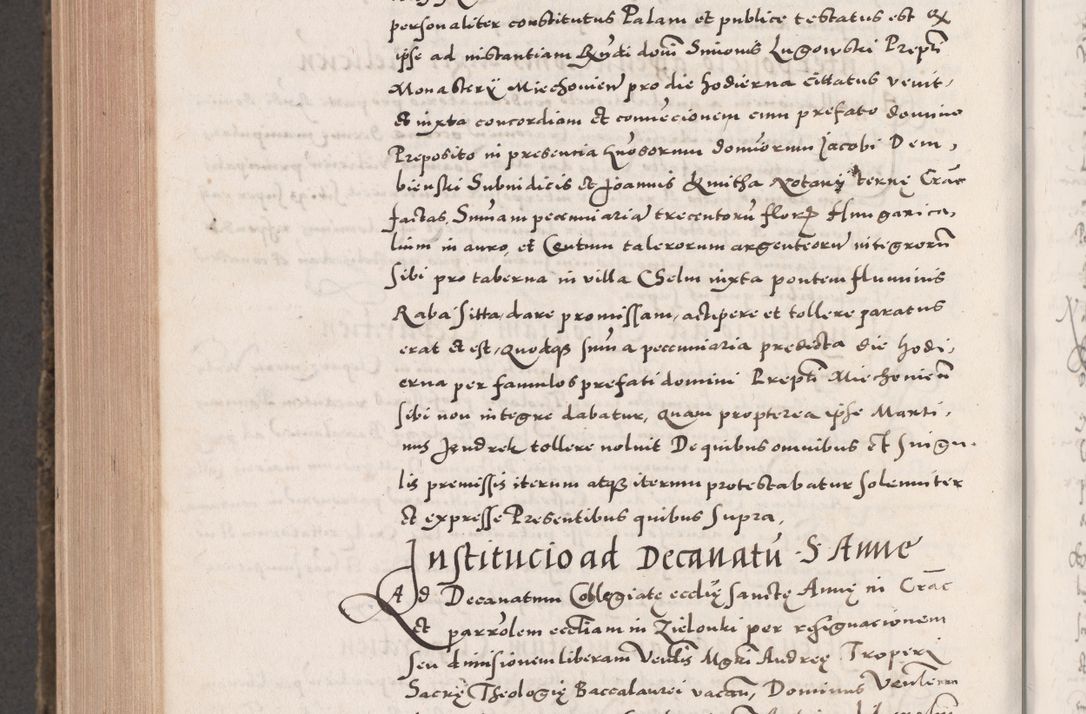 personaliter constitutus Palam et publice testatus est Q
ipse ad instantiam Rndi domi Simonis Lugowski Prepti
Monasterÿ Miechovien pro die hodierna cittatus venit,
Et iuxta concordiam et convecionem cum prefato domino
Preposito in presencia Gnosorum domnorum Jacobi Dem,
bienski Subiudicis et Joannis Kmitha Notarÿ terrę Crac
factas, Sumam pecuniariā trecentorū florę Hungarica,
lium in auro, et Centum talerorum argenteorū integrorū
sibi pro taberna in villa Chelm iuxta pontem fluminis
Raba sitta, dare promissam, accipere et tollere paratus
erat et est, Quodq suma pecuniaria predicta die hodi,
erna per famulos prefati domini Prepti Miechovien
sibi non integre dabatur, Quam propterea ipse Marti,
nus Jendrek tollere noluit De quibus omnibus et singu,
lis premissis iterum atq iterum protestabatur solenniter
et expresse Presentibus quibus supra,
Institucio ad Decanatū S Anne
Ad Decanatum Collegiatę ecclię sanctę Annę in Crac
et parrolem eccliam in Zielonki per resignacionem
seu dimisionem liberam Venlis Mgri Andreę Troperi
Sacrę Theologię Baccalaurei vacan, Dominus Venlem